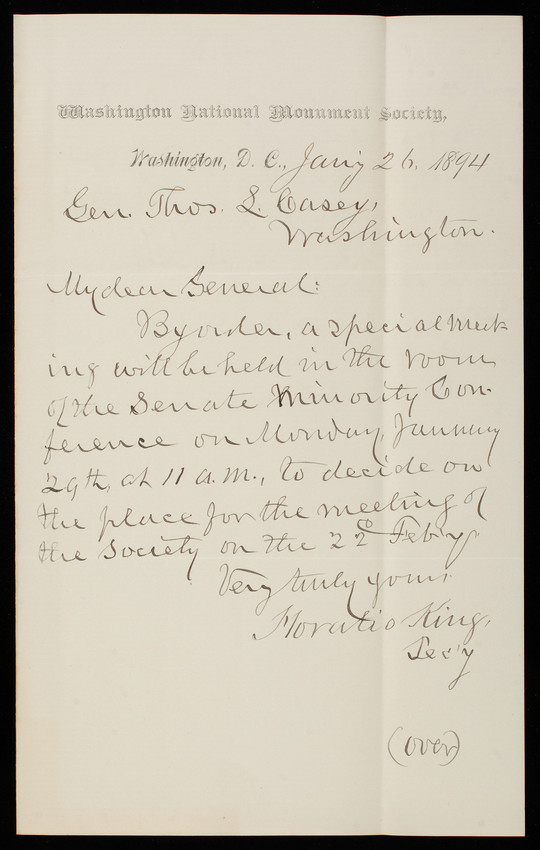 Washington National Monument Society,
Washington, D. C., Jan'y 26, 1894
Gen. Thos. L. Casey,
Washington.
My dear General:
By order, a special meet-
ing will be held in the room
of the Senate Minority Con-
ference on Monday, January
29th, at 11 a.m., to decide on
the place for the meeting of
the Society on the 22d Feb'y.
Very truly yours,
Horatio King,
Sec'y
(over)